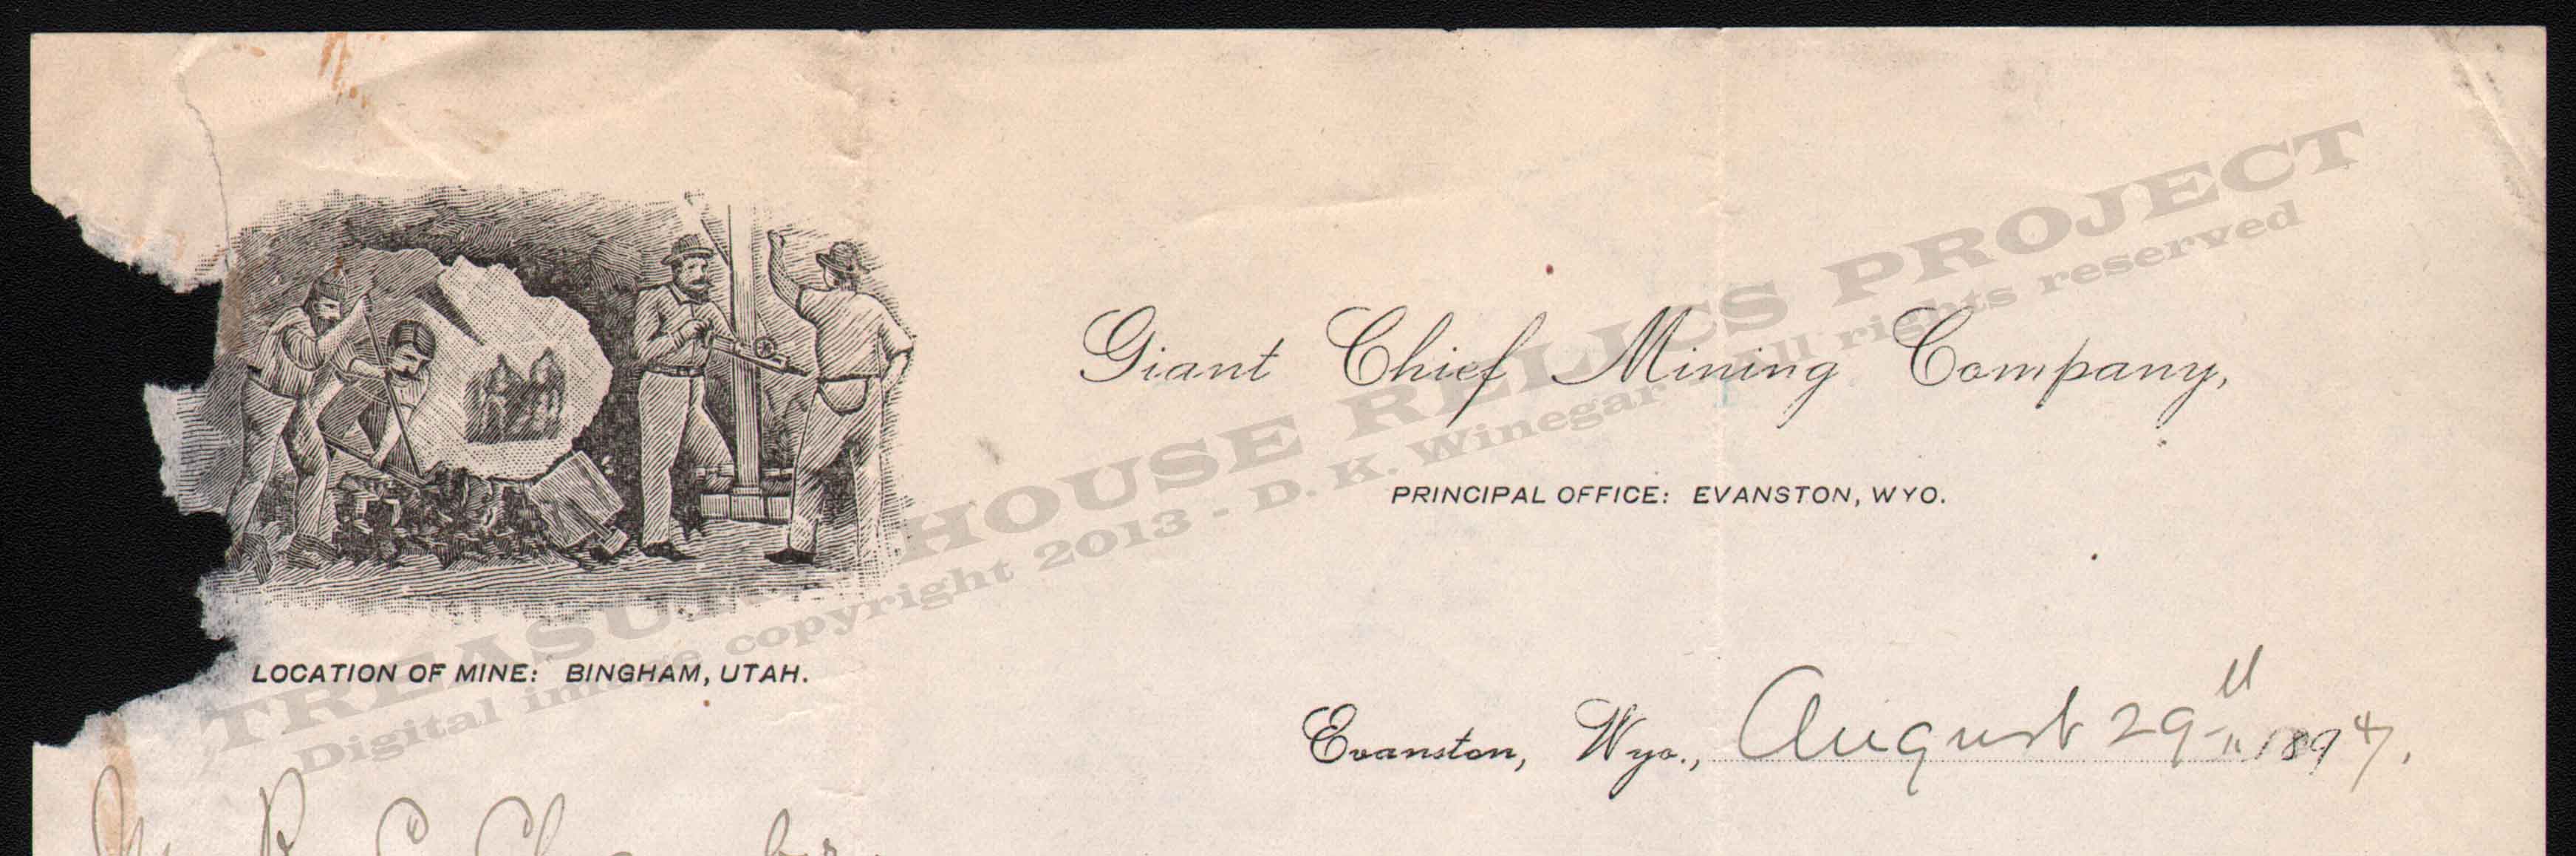 Giant Chief Mining Company,
PRINCIPAL OFFICE: EVANSTON, WYO.
LOCATION OF MINE: BINGHAM, UTAH.
Evanston, Wyo., August 29th 1894.
Mr R. C. Chambers
TREASURE HOUSE RELICS PROJECT
Digital image copyright 2013 - D. K. Winegar All rights reserved